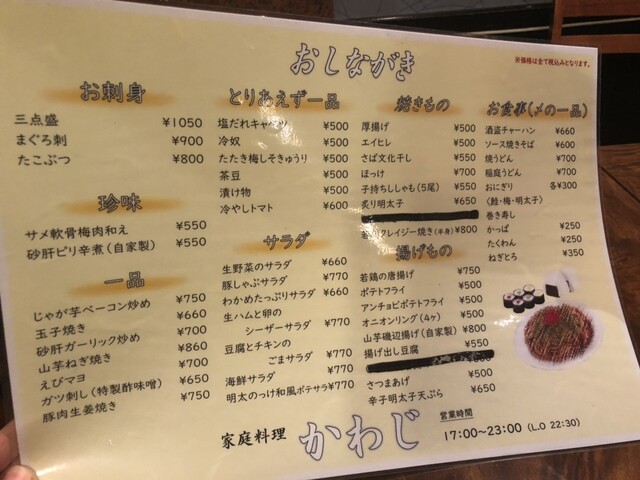 おしながき
※価格は全て税込みとなります。
お刺身
三点盛 ¥1050
まぐろ刺 ¥900
たこぶつ ¥800
珍味
サメ軟骨梅肉和え ¥550
砂肝ピリ辛煮(自家製) ¥550
一品
じゃが芋ベーコン炒め ¥750
玉子焼き ¥660
砂肝ガーリック炒め ¥700
山芋ねぎ焼き ¥860
えびマヨ ¥700
ガツ刺し(特製酢味噌) ¥650
豚肉生姜焼き ¥750
とりあえず一品
塩だれキャベツ ¥500
冷奴 ¥500
たたき梅しそきゅうり ¥500
茶豆 ¥500
漬け物 ¥500
冷やしトマト ¥600
サラダ
生野菜のサラダ ¥660
豚しゃぶサラダ ¥770
わかめたっぷりサラダ ¥660
生ハムと卵の
シーザーサラダ ¥770
豆腐とチキンの
ごまサラダ ¥770
海鮮サラダ ¥770
明太のっけ和風ポテサラ ¥770
焼きもの
厚揚げ ¥500
エイヒレ ¥500
さば文化干し ¥550
ほっけ ¥700
子持ちししゃも(5尾) ¥550
炙り明太子 ¥650
クレイジー焼き(半身) ¥800
揚げもの
若鶏の唐揚げ ¥750
ポテトフライ ¥500
アンチョビポテトフライ ¥500
オニオンリング(4ヶ) ¥500
山芋磯辺揚げ(自家製) ¥800
揚げ出し豆腐 ¥550
さつまあげ ¥500
辛子明太子天ぷら ¥650
お食事(〆の一品)
酒盗チャーハン ¥660
ソース焼きそば ¥600
焼うどん ¥700
稲庭うどん ¥700
おにぎり 各¥300
〈鮭・梅・明太子〉
巻き寿し
かっぱ ¥250
たくわん ¥250
ねぎとろ ¥350
家庭料理 かわじ
営業時間
17:00~23:00 (L.O 22:30)